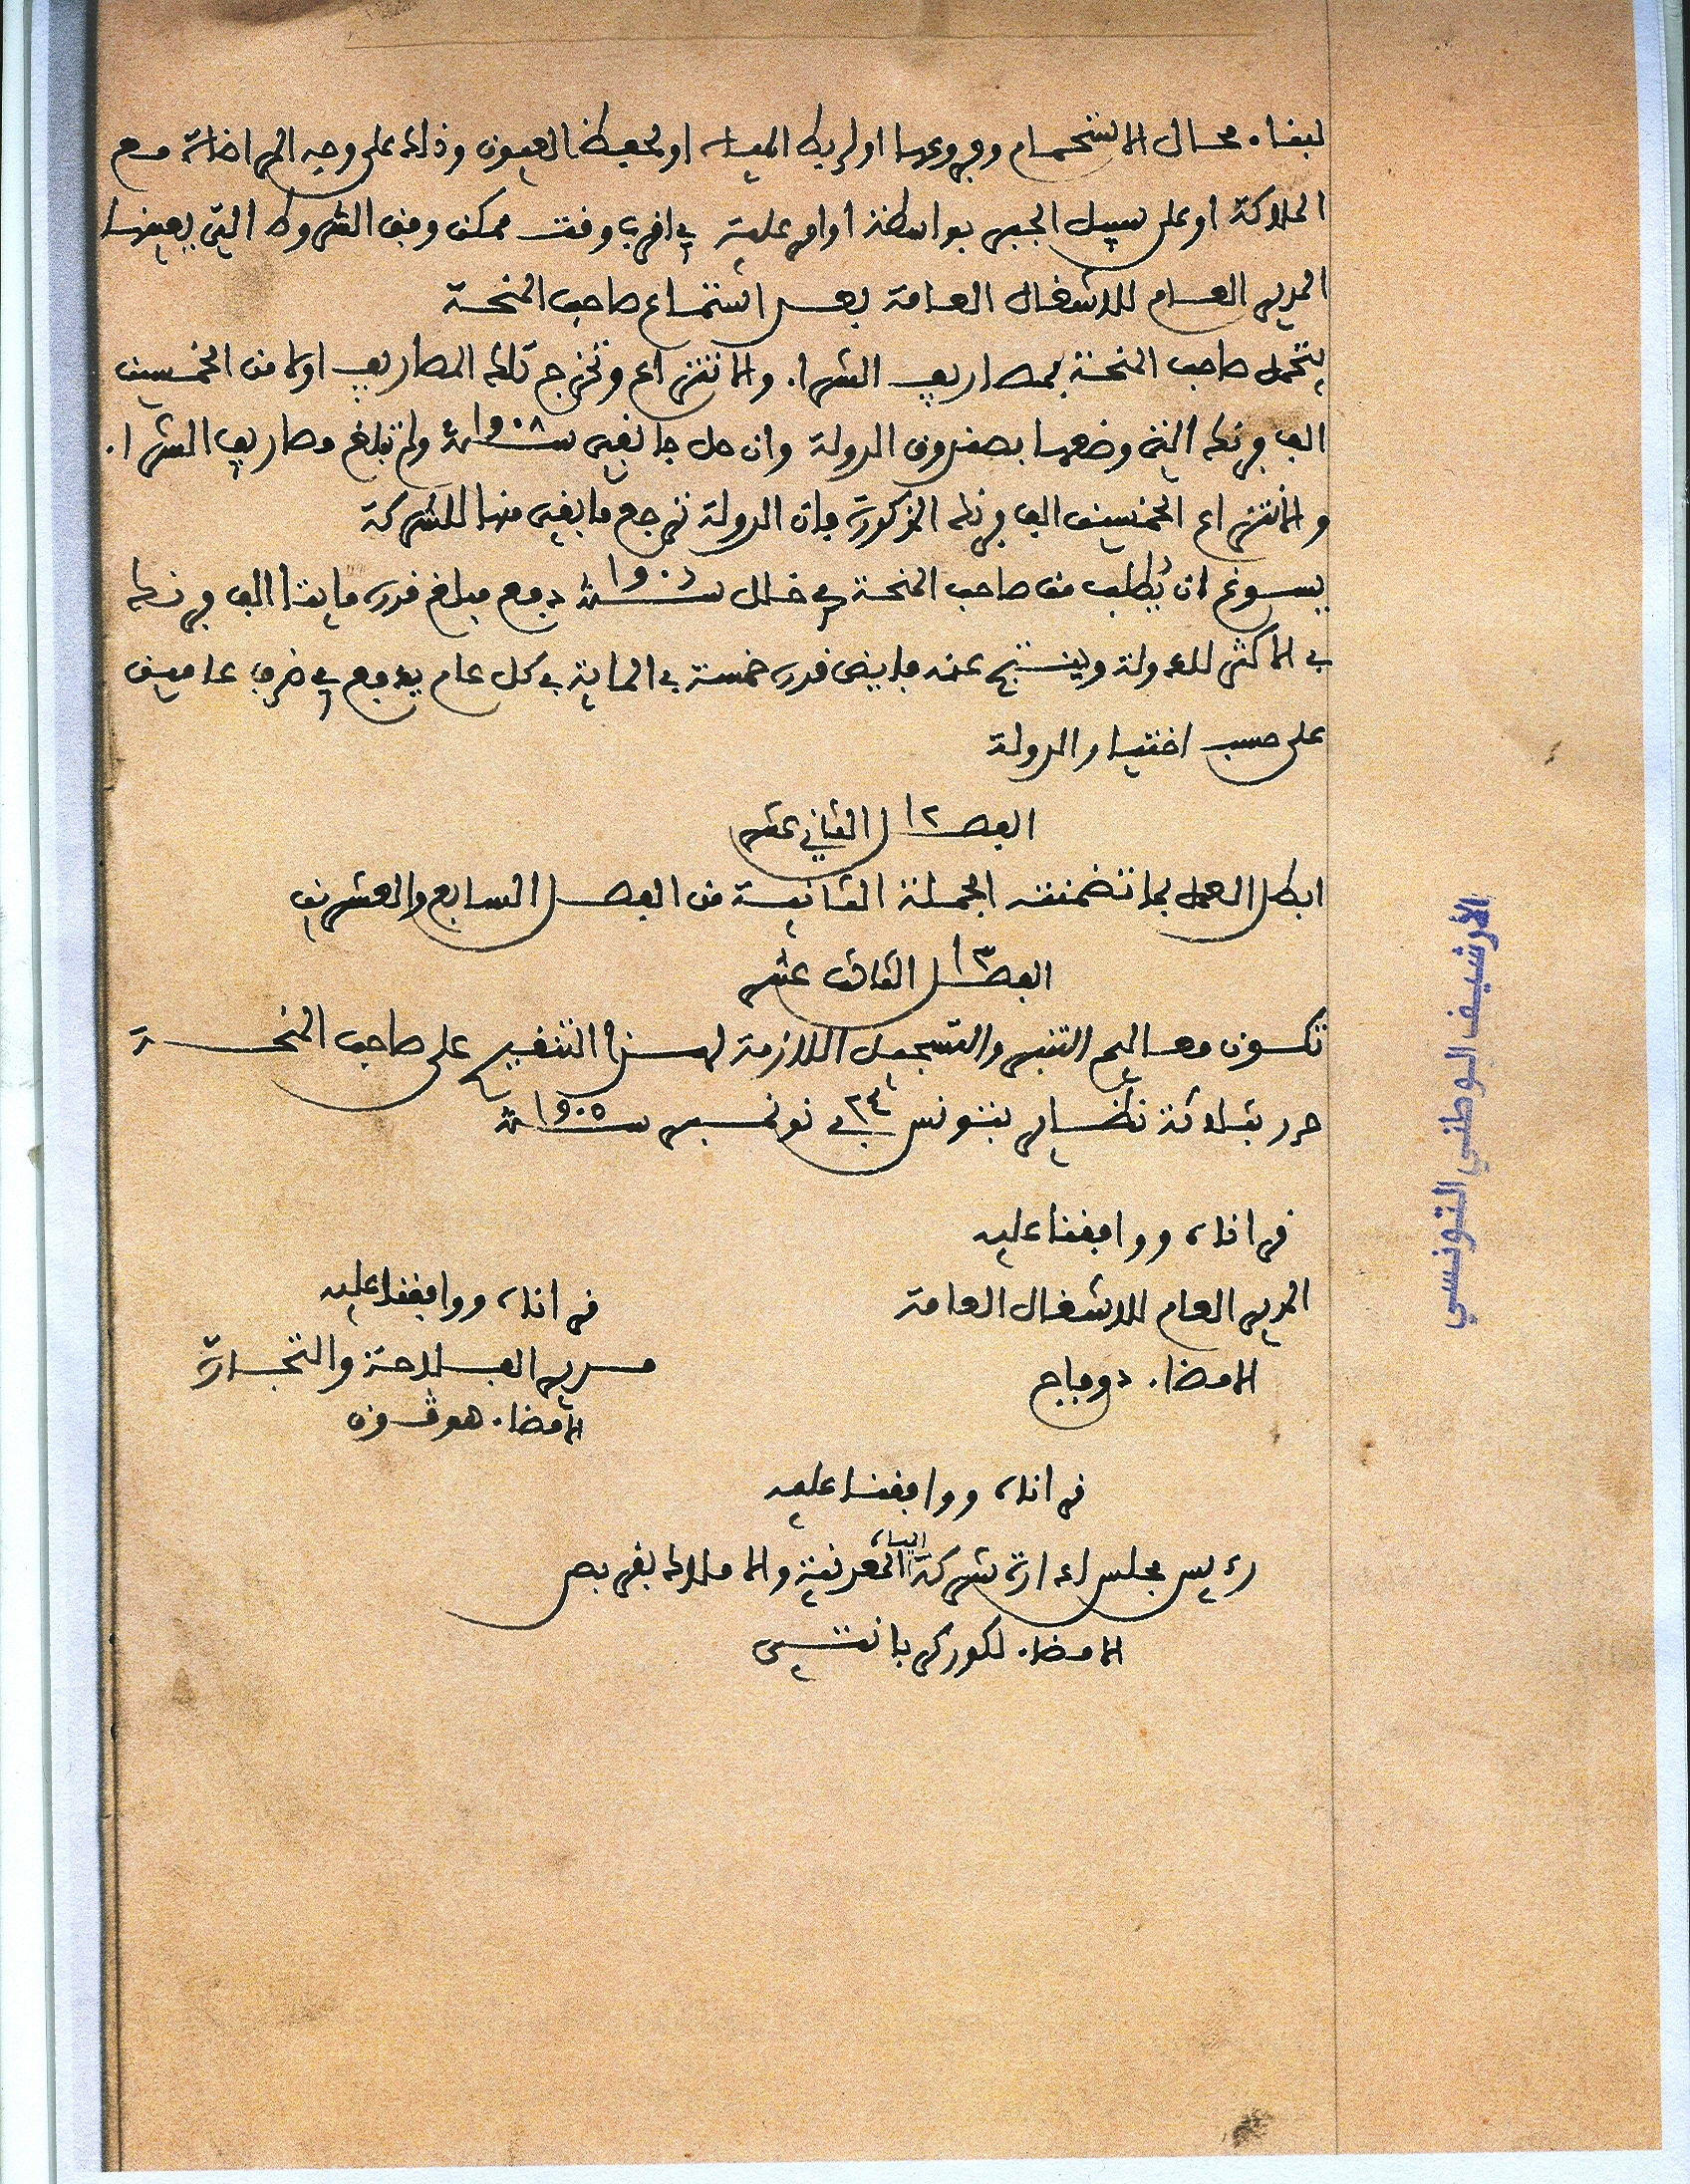 لبناء محال الاستحمام وفروعها او لربط المياه او لحيطة العيون وذلك على وجه المراضاة مع
الملاكة او على سبيل الجبر بواسطة اوامر علية في اقرب وقت ممكن وفق الشروط التي يعينها
المدير العام للاشغال العامة بعد استماع صاحب المنحة
يتحمل صاحب المنحة بمصاريف الشراء والانتزاع وتخرج تلك المصاريف اولا من الخمسين
الف فرنك التي وضعها بصندوق الدولة وان حل جانفي سنة ١٩٠٨ ولم تبلغ مصاريف الشراء
والانتزاع الخمسين الف فرنك المذكورة فان الدولة ترجع ما بقي منها للشركة
يسوغ ان يُطلب من صاحب المنحة في خلال سنة ١٩٠٥ دفع مبلغ قدره مايتا الف فرنك
في الاكثر للدولة وينتج عنه فايض قدره خمسة في الماية في كل عام يدفع في ظرف عامين
على حسب اختيار الدولة
الفصل ١٢ الثاني عشر
ابطل العمل بما تضمنته الجملة الثانية من الفصل السابع والعشرين
الفصل ١٣ الثالث عشر
تكون معاليم التنبر والتسجيل اللازمة لهذا التنقيح على صاحب المنحة
حرر بثلاثة نظاير بتونس في ٢٤ نونمبر سنة ١٩٠٥
قراناه ووافقنا عليه
المدير العام للاشغال العامة
الامضاء دوفاج
قراناه ووافقنا عليه
مدير الفلاحة والتجارة
الامضاء هوڨون
قراناه ووافقنا عليه
رييس مجلس ادارة شركة المياه المعدنية والاملاك بقربص
الامضاء لكوركي بانتيي
الأرشيف الوطني التونسي